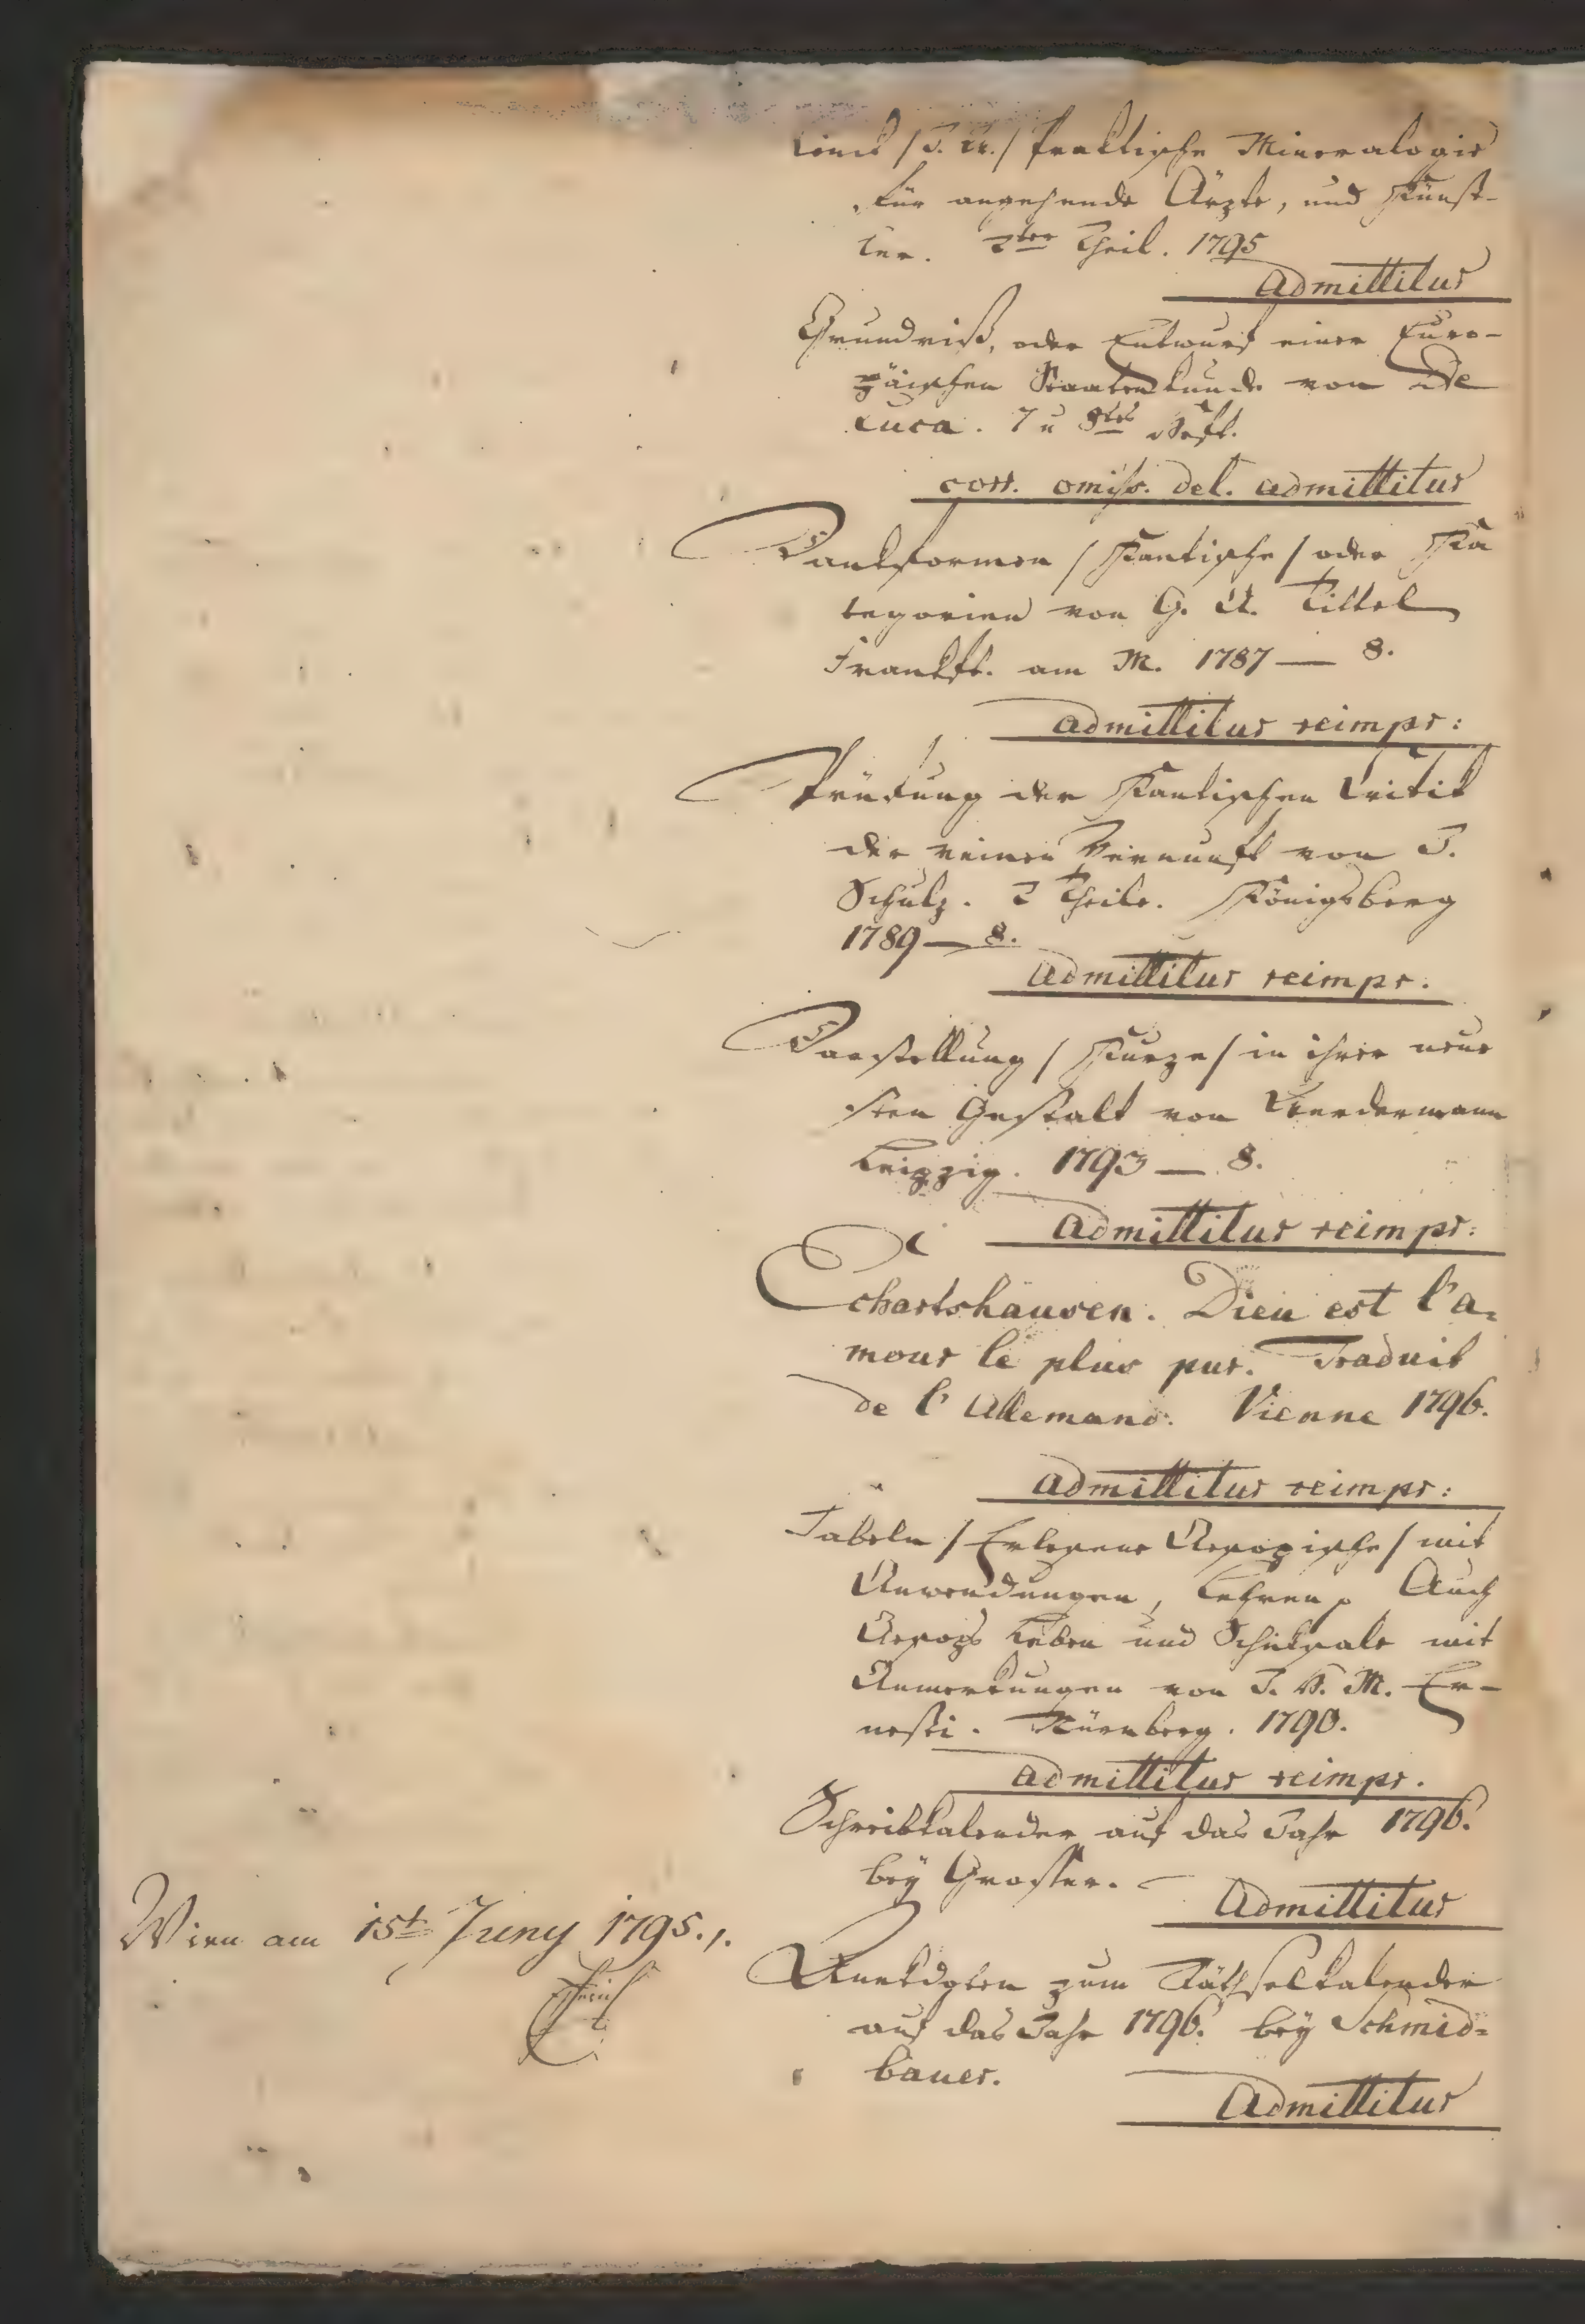 Linck / J. W. / Praktische Mineralogie
für angehende Ärzte, und Künst-
ler. 2ter Theil. 1795
Admittitur
Grundriß, oder Entwurf einer Euro-
päischen Staatenkunde von De
Luca. 7 u 8tes Heft.
corr. omiss. del. admittitur
Denkformen / Kantische / oder Ka
tegorien von G. A. Tittel
Frankft. am M. 1787 — 8.
Admittitur reimpr:
Prüfung der Kantischen Critik
der reinen Vernunft von J.
Schulz. 2 Theile. Königsberg
1789 — 8.
Admittitur reimpr.
Darstellung / Kurze / in ihrer neue
sten Gestalt von Werdermann
Leipzig. 1793 — 8.
Admittitur reimpr:
Echartshausen. Dieu est l'a=
mour le plus pur. Traduit
de l'Allemand. Vienne 1796.
Admittitur reimpr:
Fabeln / Erlesene Aesopische / mit
Anwendungen, Lehren Auch
Aesops Leben und Schiksale mit
Anmerkungen von J. H. M. Er-
nesti. Nürnberg. 1790.
Admittitur reimpr.
Schreibkalender auf das Jahr 1796.
bey Grosser.
Admittitur
Anekdoten zum Räthselkalender
auf das Jahr 1796. bey Schmid=
bauer.
Admittitur
Wien am 15t Juny 1795.